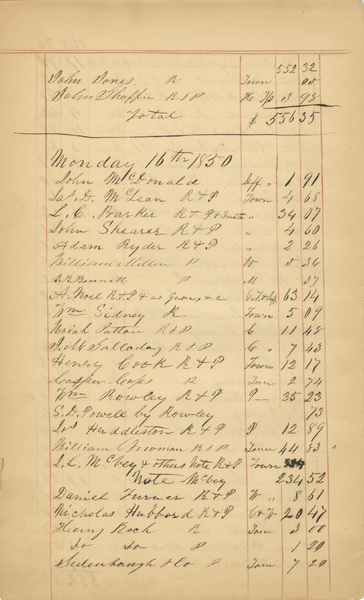 552 32
John Jones R Town 05
John Shaffer R & P 3 98
Total $ 556 35
Monday 16th 1850
John McDonald Jeff " 1 91
Jas. D. McLean R & P Town 4 68
L. C. Barker R & P " 34 07
John Shearer R & P " 4 60
Adam Ryder R & P " 2 26
William Miller P W 36
Bennett P M 37
A. Noel R & P & as 63 14
Wm Sidney R Town 5 09
Uriah Patton R & P C 11 48
Galladay R & P C " 7 43
Henry Cook R & P Town 12 17
Casper R Town 2 74
Wm Rowley R & P P 35 23
S. D. Powell by Rowley 73
Jno Huddleston R & P P 12 89
William Newman R & P Town 44 83
L. C. McBey & others Note R & P Town
Note McBey 234 52
Daniel Turner R & P W " 8 61
Nicholas Hubbard R & P C & W 20 47
Henry Rock R Town 3 00
Do Do P 1 20
Sidenbaugh & Co P Town 7 20